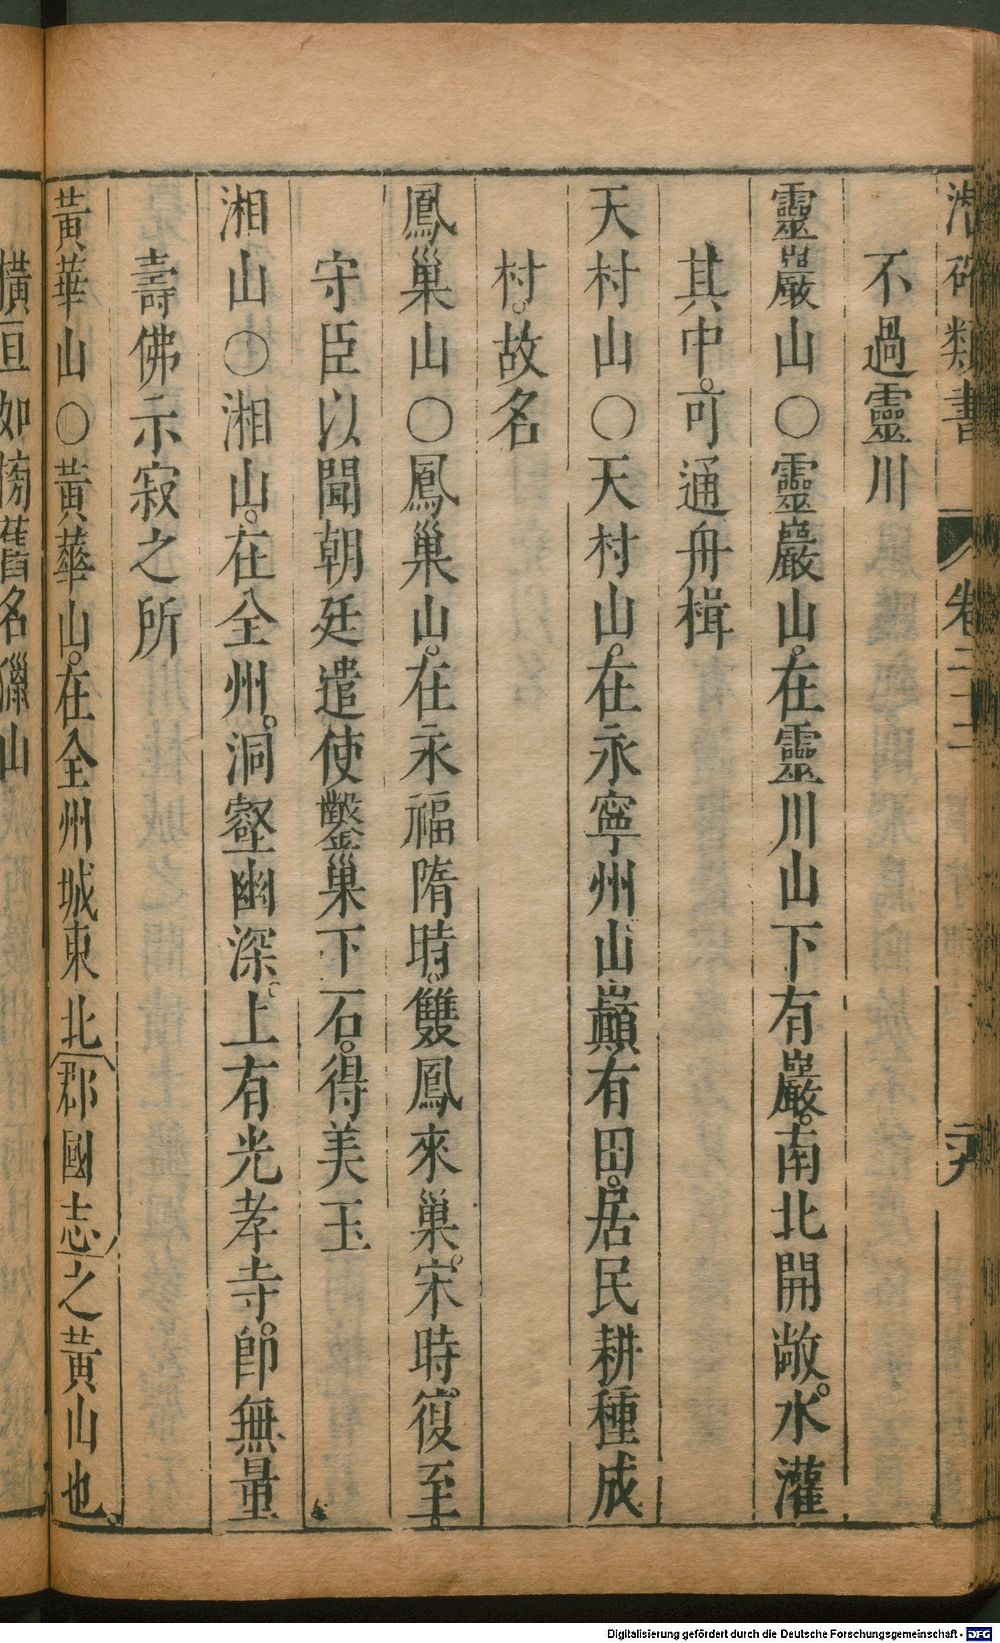 潛確類書 卷二十二
不過靈川
靈巖山○靈巖山在靈川山下有巖南北開敞水灌
其中可通舟楫
天村山○天村山在永寧州山巔有田居民耕種成
村故名
鳳巢山○鳳巢山在永福隋時雙鳳來巢宋時復至
守臣以聞朝廷遣使鑿巢下一石得美玉
湘山○湘山在全州洞壑幽深上有光孝寺即無量
壽佛示寂之所
黃華山○黃華山在全州城東北郡國志之黃山也
橫亘如榜舊名獵山
Digitalisierung gefördert durch die Deutsche Forschungsgemeinschaft - DFG